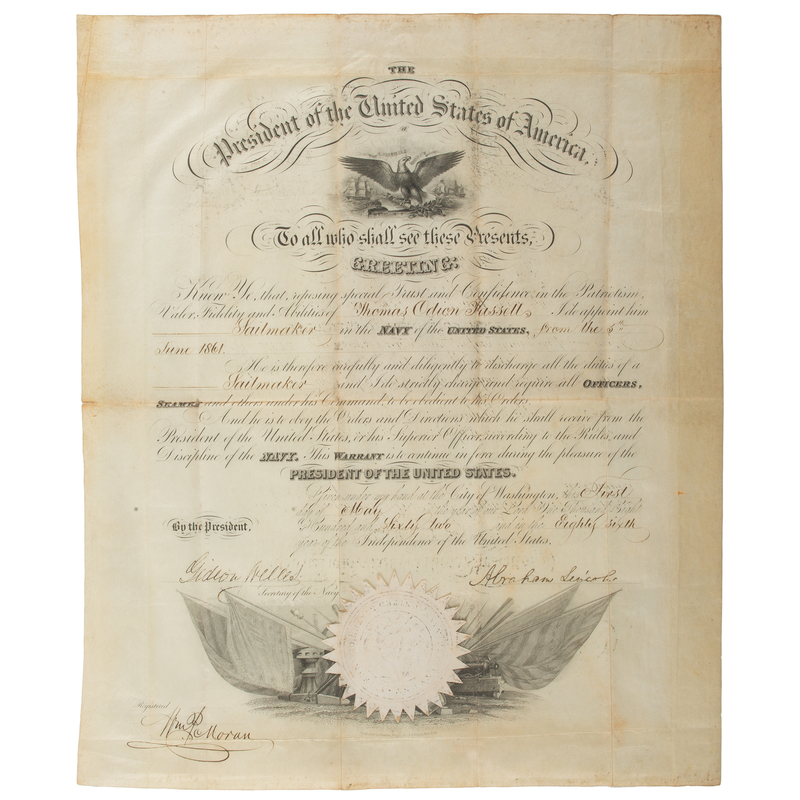 THE
President of the United States of America,
To all who shall see these Presents,
GREETING:
Know Ye, that, reposing special Trust and Confidence in the Patriotism,
Valor, Fidelity and Abilities of Thomas Odion Fassett I do appoint him
Sailmaker in the NAVY of the UNITED STATES, from the 5th
June 1861.
He is therefore carefully and diligently to discharge all the duties of a
Sailmaker and I do strictly charge and require all OFFICERS,
SEAMEN and others under his Command, to be obedient to his Orders.
And he is to obey the Orders and Directions which he shall receive from the
President of the United States, or his Superior Officer, according to the Rules, and
Discipline of the NAVY. This WARRANT is to continue in force during the pleasure of the
PRESIDENT OF THE UNITED STATES.
Given under my hand at the City of Washington, this First
day of May in the year of our Lord One Thousand Eight
Hundred and Sixty two and in the Eighty sixth
year of the Independence of the United States.
By the President,
Gideon Welles
Abraham Lincoln
Secretary of the Navy
Registered
Wm P. Moran